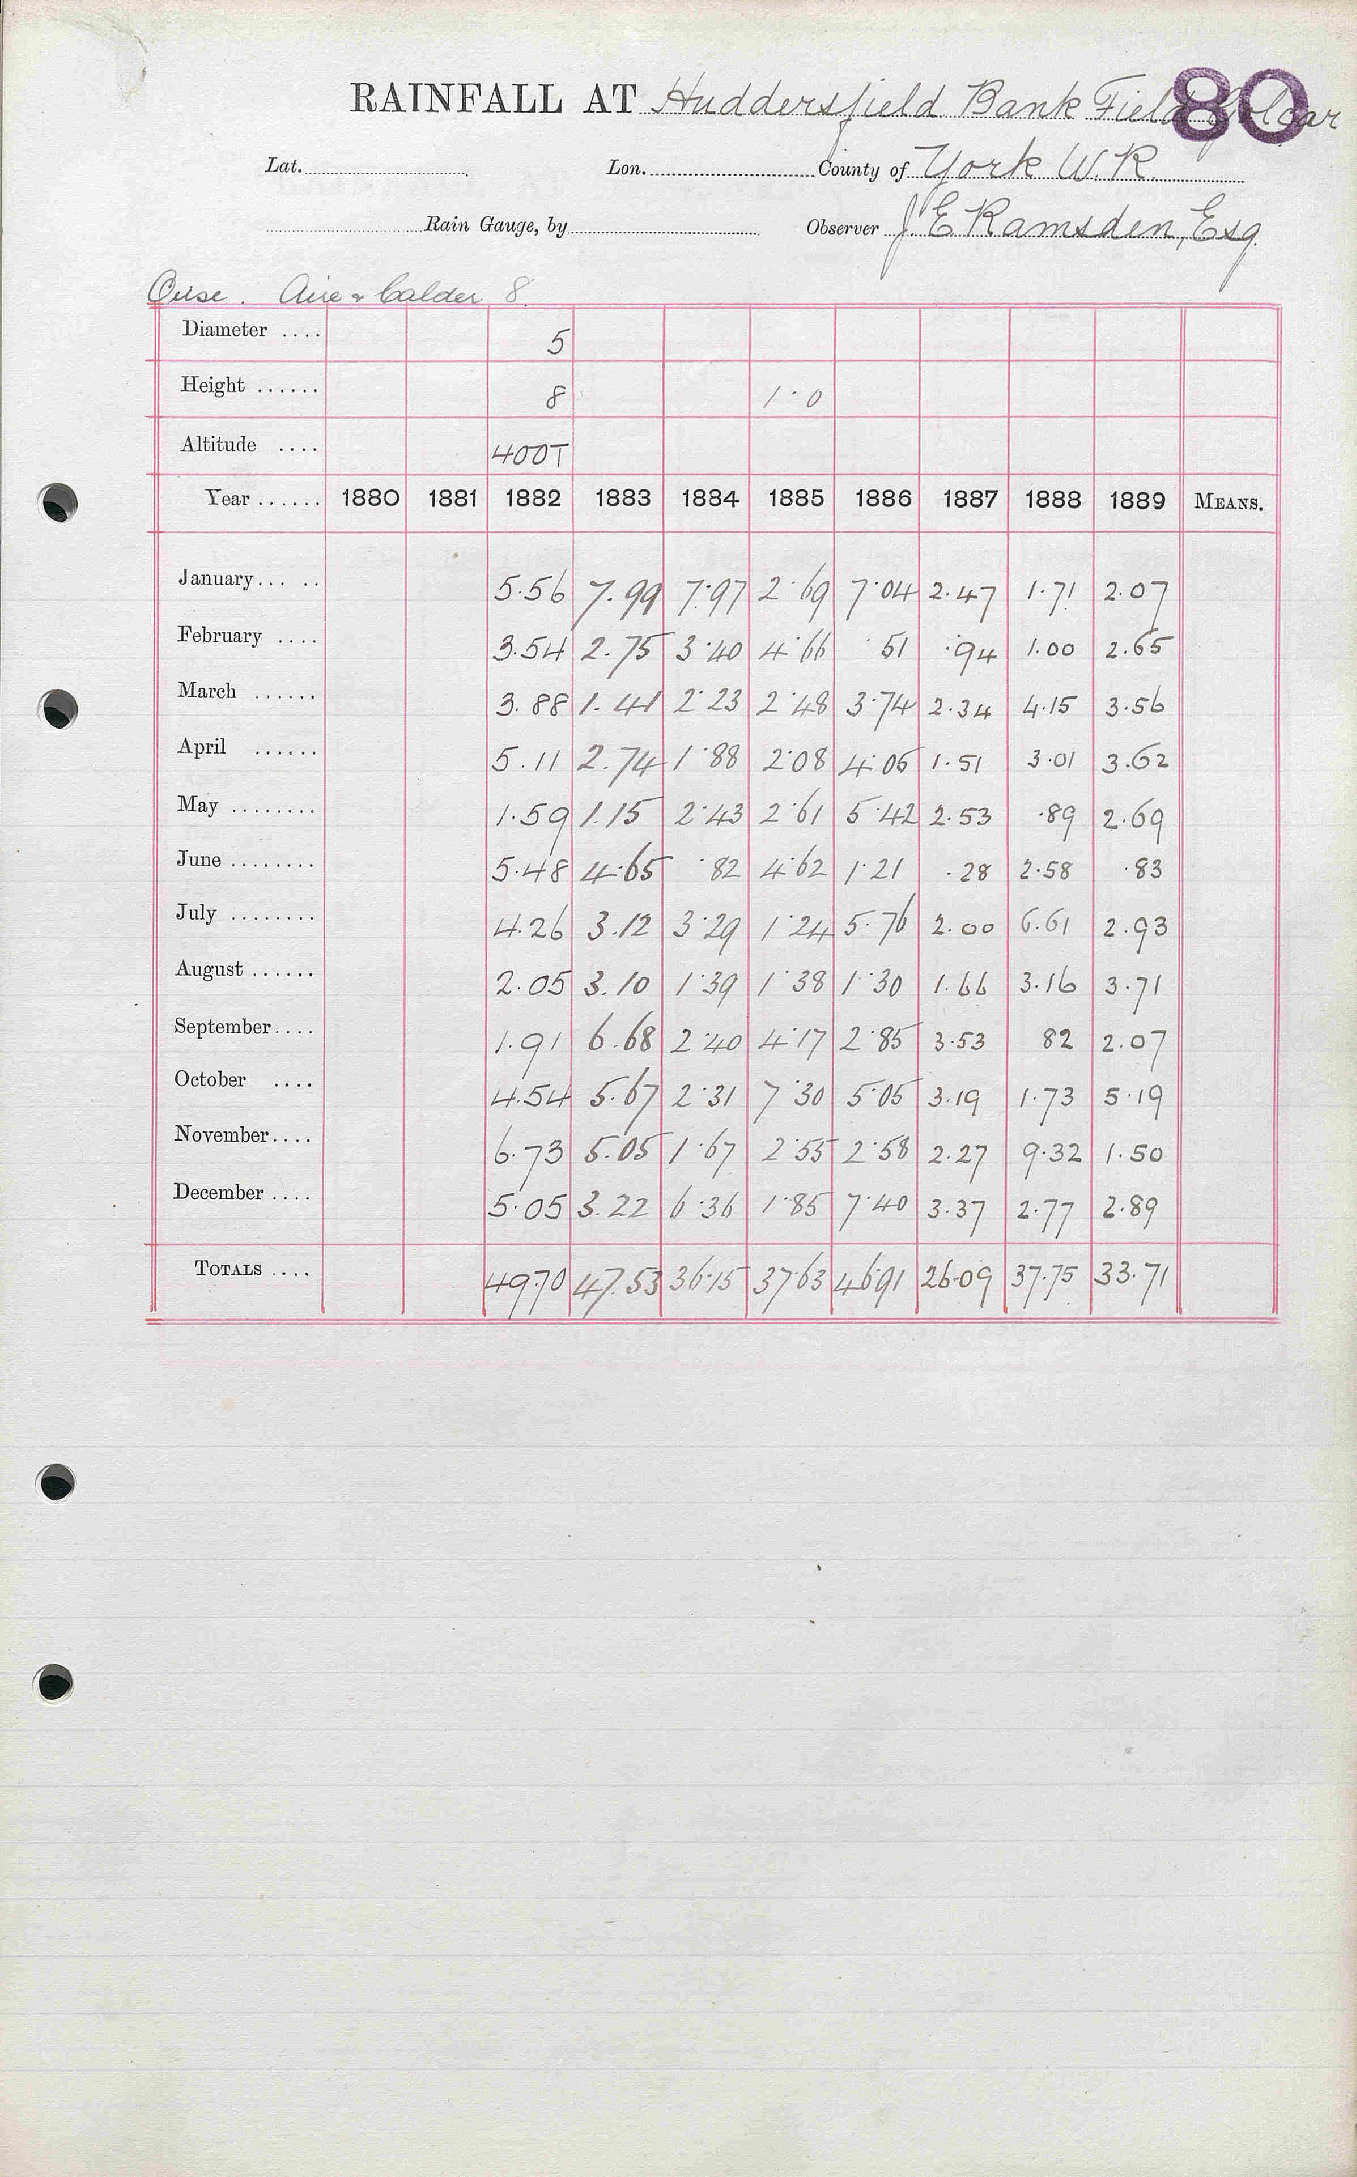 80
RAINFALL AT Huddersfield Bank Field Golcar
Lat. Lon. County of York W.R.
Rain Gauge, by Observer J E Ramsden, Esq
Ouse. Aire & Calder 8.
Diameter .... 5
Height ...... 8 1·0
Altitude .... 400T
Year ...... 1880 1881 1882 1883 1884 1885 1886 1887 1888 1889 MEANS.
January... .. 5.56 7.99 7·97 2·69 7·04 2.47 1·71 2.07
February .... 3.54 2.75 3·40 4·66 ·51 ·94 1.00 2.65
March ...... 3.88 1.41 2·23 2·48 3·74 2.34 4·15 3.56
April ...... 5.11 2.74 1·88 2·08 4·05 1·51 3·01 3.62
May ........ 1·59 1.15 2·43 2·61 5·42 2.53 ·89 2.69
June ........ 5·48 4·65 ·82 4·62 1·21 ·28 2·58 ·83
July ........ 4.26 3.12 3·29 1·24 5·76 2.00 6.61 2.93
August ...... 2.05 3.10 1·39 1·38 1·30 1.66 3.16 3·71
September.... 1.91 6.68 2·40 4·17 2·85 3·53 82 2.07
October .... 4.54 5.67 2·31 7·30 5·05 3.19 1·73 5·19
November.... 6.73 5.05 1·67 2·55 2·58 2.27 9·32 1.50
December .... 5·05 3.22 6·36 1·85 7·40 3·37 2·77 2·89
TOTALS .... 49·70 47.53 36·15 37·63 46·91 26·09 37·75 33·71